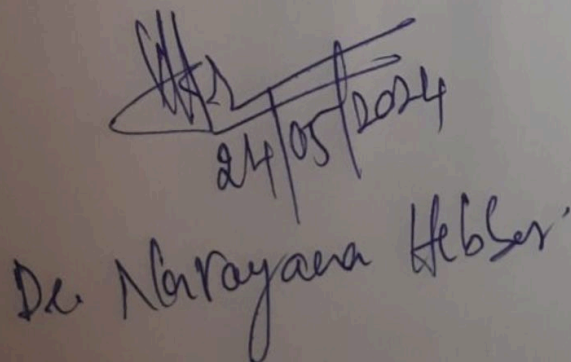 24/05/2024
Dr. Narayana Hebbar.